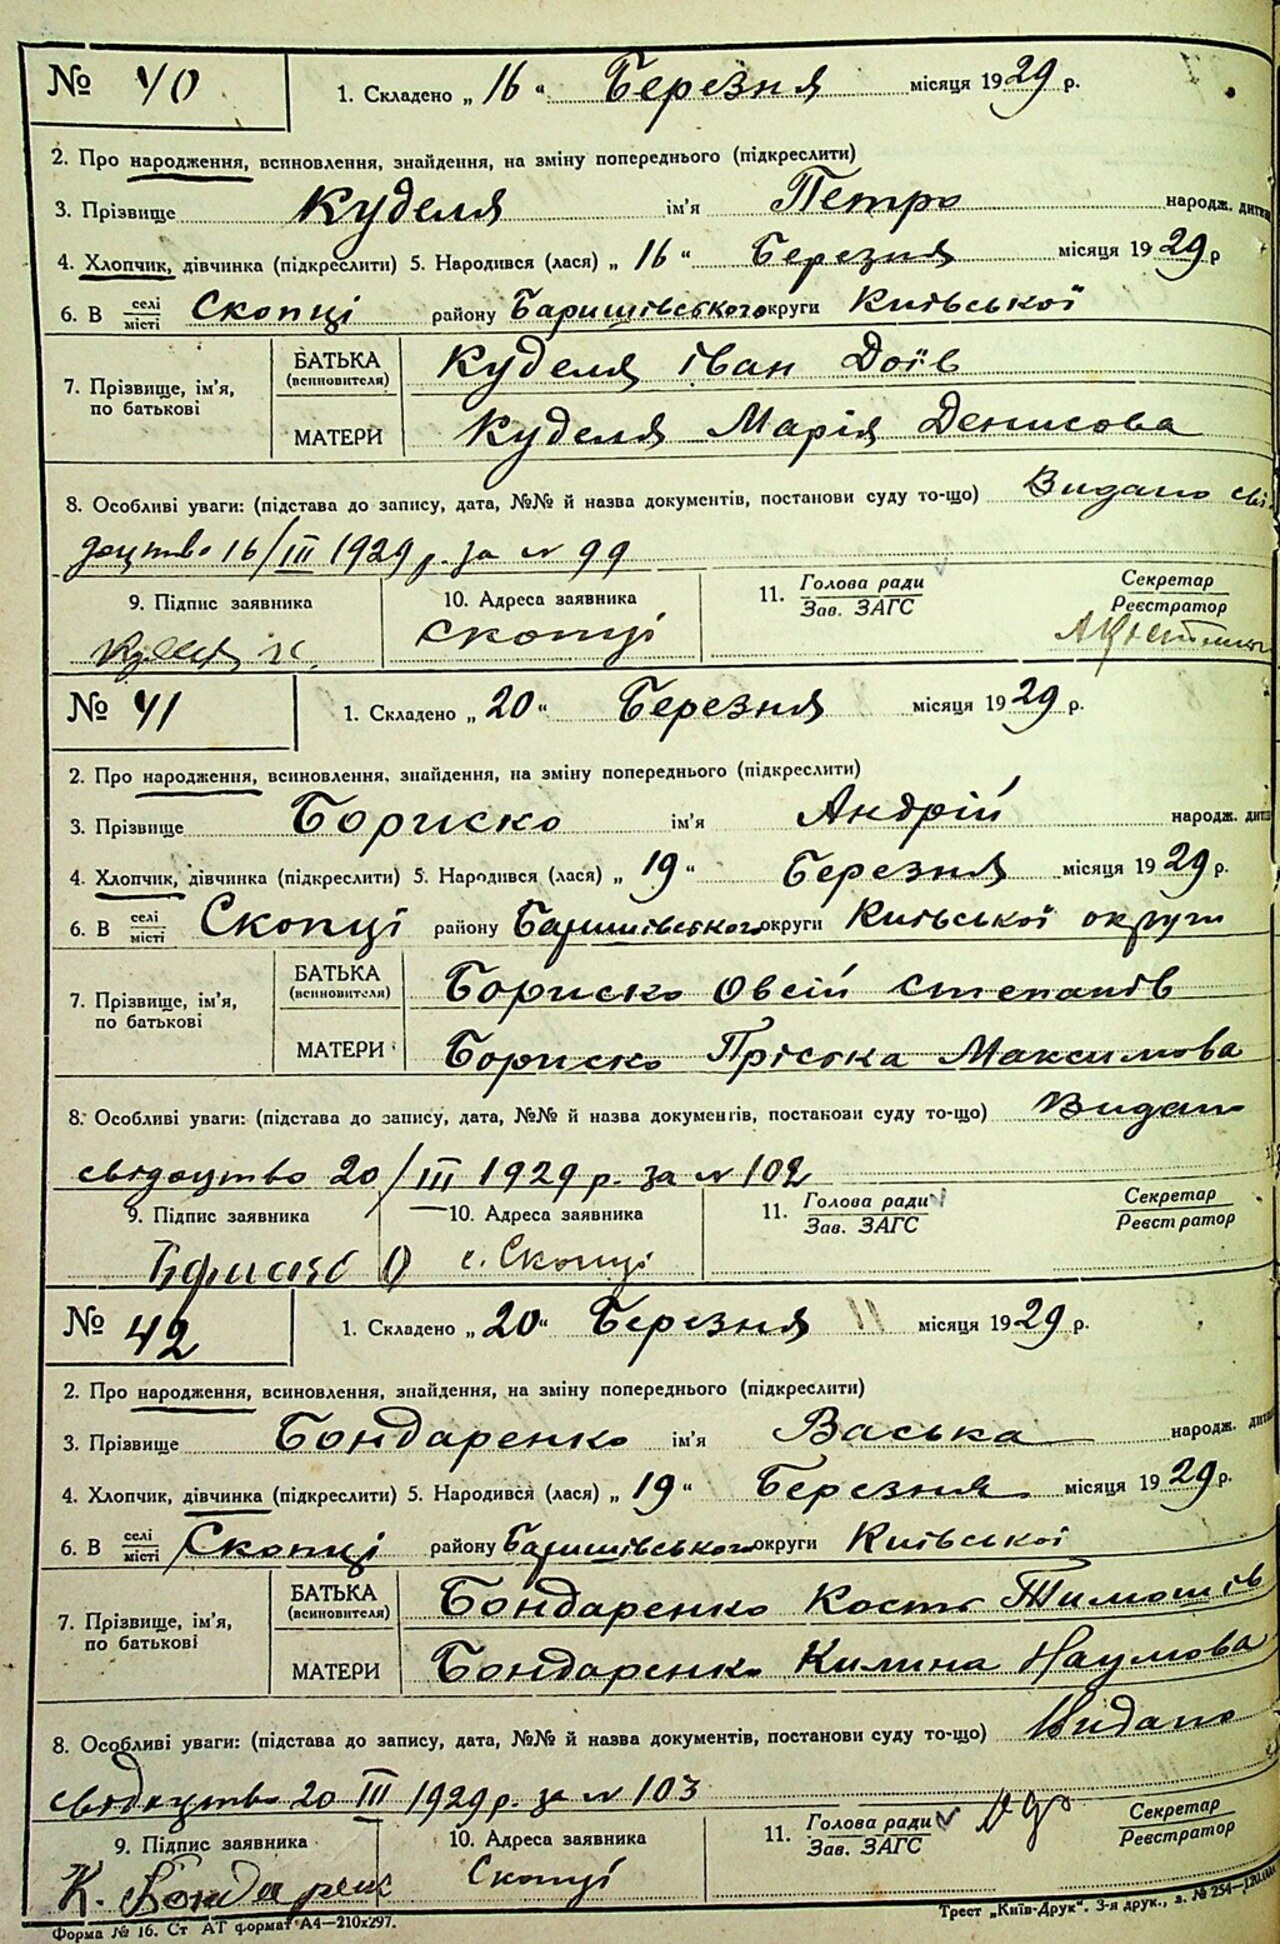 № 40 1. Складено „16“ Березня місяця 1929 р.
2. Про народження, всиновлення, знайдення, на зміну попереднього (підкреслити)
3. Прізвище Куделя ім'я Петро народж. дитин
4. Хлопчик, дівчинка (підкреслити) 5. Народився (лася) „16“ Березня місяця 1929 р
6. В селі місті Скопці району Баришівського округи Київської
7. Прізвище, ім'я, по батькові БАТЬКА (всиновителя) Куделя Іван Доїв
МАТЕРИ Куделя Марія Денисова
8. Особливі уваги: (підстава до запису, дата, №№ й назва документів, постанови суду то-що) Видано сві
доцтво 16/III 1929 р. за № 99
9. Підпис заявника 10. Адреса заявника 11. Голова ради Зав. ЗАГС Секретар Реєстратор
Скопці
№ 41 1. Складено „20“ Березня місяця 1929 р.
2. Про народження, всиновлення, знайдення, на зміну попереднього (підкреслити)
3. Прізвище Бориско ім'я Андрій народж. дити
4. Хлопчик, дівчинка (підкреслити) 5. Народився (лася) „19“ Березня місяця 1929 р.
6. В селі місті Скопці району Баришівського округи Київської округи
7. Прізвище, ім'я, по батькові БАТЬКА (всиновителя) Бориско Овсій Степанів
МАТЕРИ Бориско Пріська Максимова
8. Особливі уваги: (підстава до запису, дата, №№ й назва документів, постанови суду то-що) Видан
свідоцтво 20/III 1929 р. за № 102
9. Підпис заявника 10. Адреса заявника 11. Голова ради Зав. ЗАГС Секретар Реєстратор
с. Скопці
№ 42 1. Складено „20“ Березня місяця 1929 р.
2. Про народження, всиновлення, знайдення, на зміну попереднього (підкреслити)
3. Прізвище Бондаренко ім'я Васька народж. дити
4. Хлопчик, дівчинка (підкреслити) 5. Народився (лася) „19“ Березня місяця 1929 р.
6. В селі місті Скопці району Баришівського округи Київської
7. Прізвище, ім'я, по батькові БАТЬКА (всиновителя) Бондаренко Кость Тимошів
МАТЕРИ Бондаренко Килина Наумова
8. Особливі уваги: (підстава до запису, дата, №№ й назва документів, постанови суду то-що) Видано
свідоцтво 20 III 1929 р. за № 103
9. Підпис заявника 10. Адреса заявника 11. Голова ради Зав. ЗАГС Секретар Реєстратор
К. Бондаренк Скопці
Форма № 16. Ст АТ формат А4—210х297. Трест „Київ-Друк“. 3-я друк., з. № 254—120.000